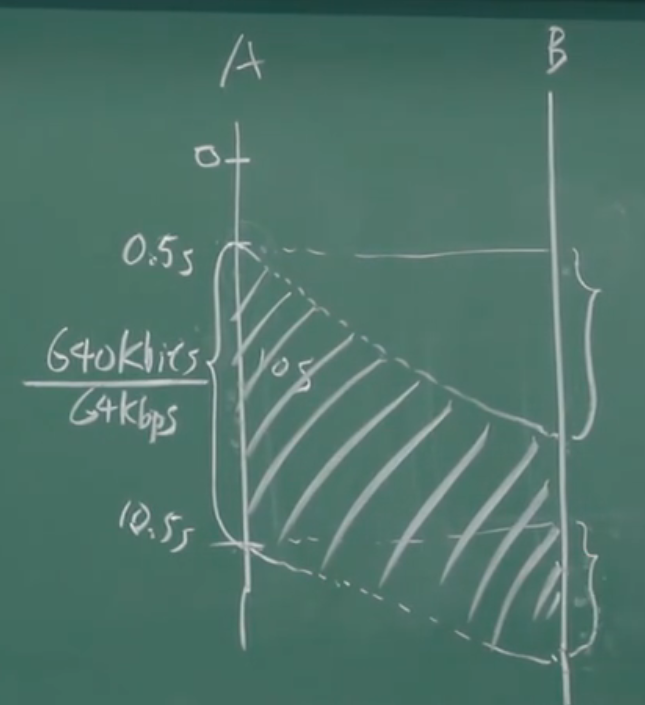 A B
0
0.5s
640Kbits
64Kbps
10s
10.5s